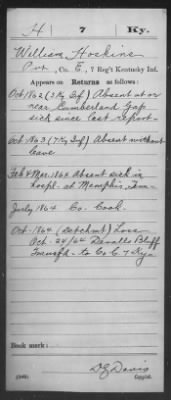 H 7 Ky.
William Hoskins
Pvt, Co. E, 7 Reg't Kentucky Inf.
Appears on
Returns as follows:
Oct 1862 (3 Ky Inf) Absent at or
near Cumberland Gap
sick since last report-
Oct 1863 (7 Ky Inf) Absent without
leave
Feb & Mar. 1864 Absent sick in
hospl. at Memphis, Tenn
July 1864 Co. Cook.
Oct. 1864 (Detchmt) Loss
Oct. 24/64 Devalls Bluff
Transfd- to Co C 7 Ky-
Book mark:
D E Davis
(546) Copyist.